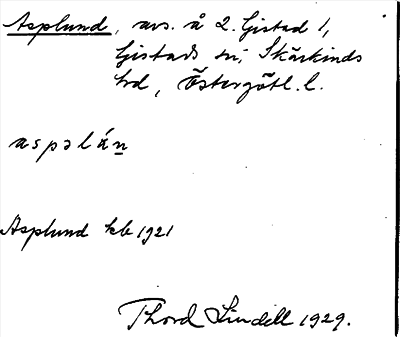 Asplund, avs. å 2. Gistad 1,
Gistads sn, Skärkinds
hd, Östergötl. l.
aspəlán
Asplund kb 1921
Thord Lindell 1929.